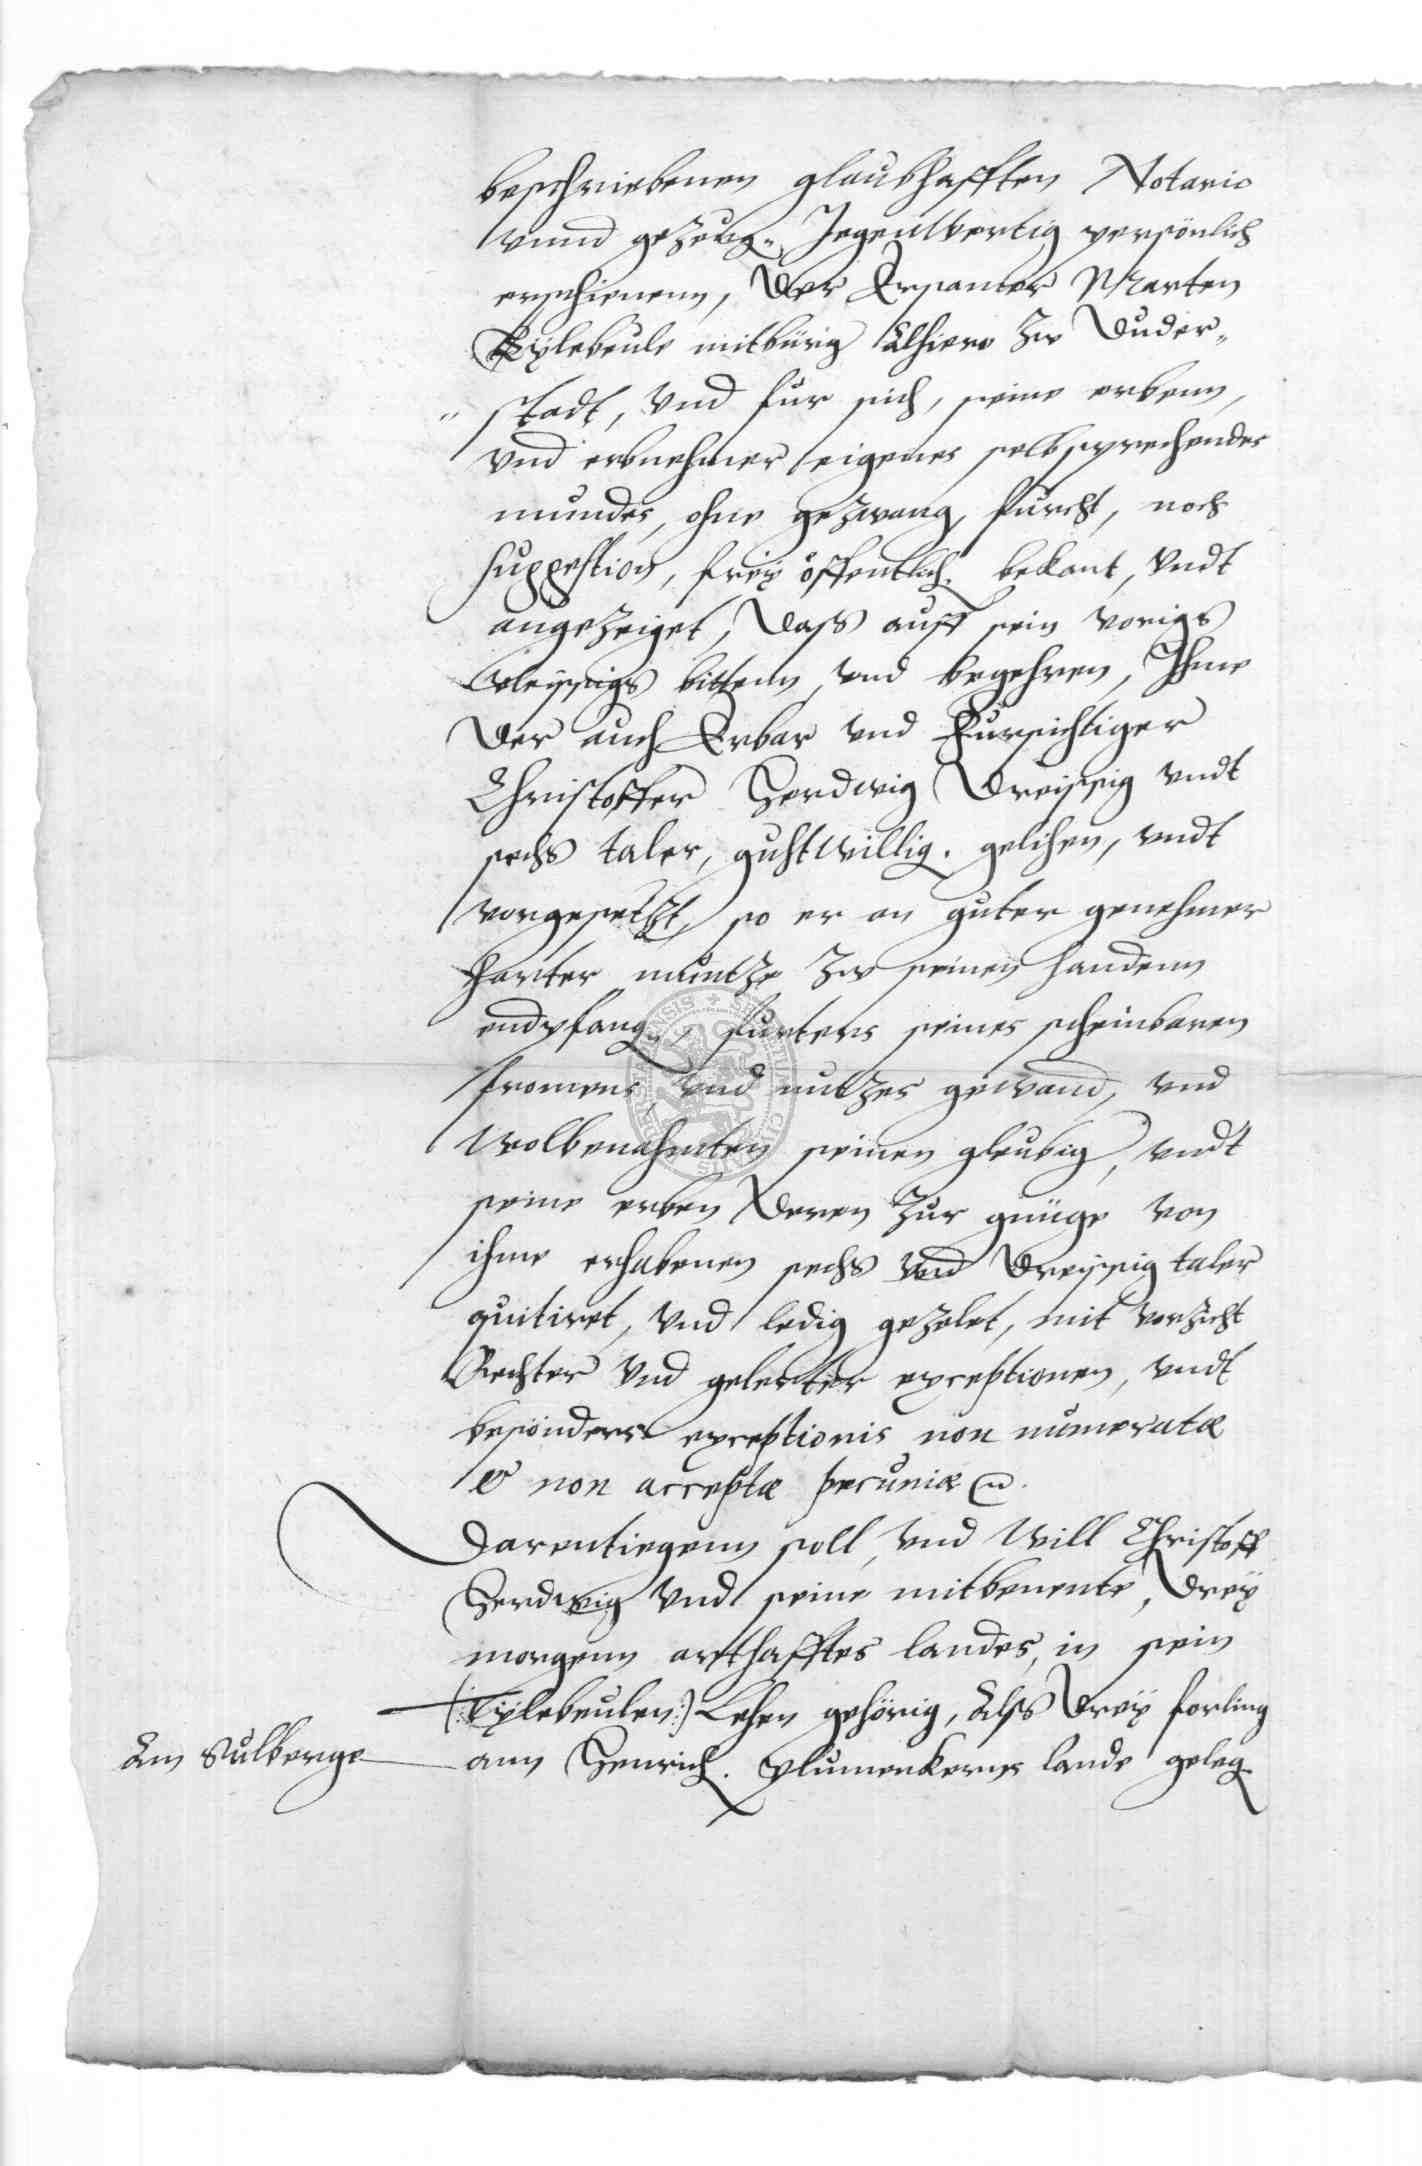 beschriebenen glaubhafften Notario
vnnd gezeug„ Jegenwertig persönlich
erschienenn, Der Ersamer Marten
Tÿlebeule mitbürig Alhiero zw Duder„
„ stadt, Vnd fur sich, seine erbenn,
Vnd erbnehmer eigenes selbsprechendes
mundes, ohne gezwang, furcht, noch
suggestion, freÿ öffentlich bekant, Vndt
angezeiget, Dass auff sein vorigs
vleyssigs bittenn, vnd begehren, Ihme
Der auch Erbar vnd Fursichtiger
Christoffer Herdwig Dreissig vndt
sechs taler, guhtwillig. gelihen, vndt
vorgesetzt, so er an guter genehmer
harter muntze zw seinen handenn
endpfang„, furters seines scheinbaren
fromens, vnd nutzes gewand, vnd
Wolbenahmten seinen gleubig, vndt
seine erben Deren zur gnüge von
ihme erhabenen sechs vnd Dreyssig taler
quitiret, Vnd ledig gezelet, mit verzicht
Rechter Vnd gelerter exceptionen, vndt
besönders exceptionis non numeratæ
& non acceptæ pecuniæ
Darentiegenn soll, vnd Will Christoff
Herdwig Vnd seine mitbenente, Dreÿ
morgenn arthafftes landes, in sein
(:Tÿlebeulen:) Lehen gehörig, Alss Dreÿ forling
Am Sulberge ann Henrich. Plumenkerns lande geleg